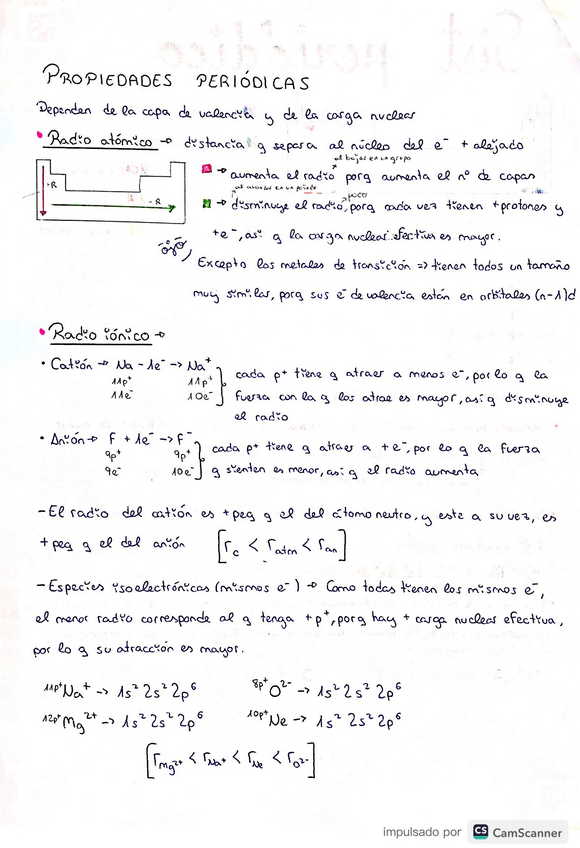 PROPIEDADES PERIÓDICAS
Dependen de la capa de valencia y de la carga nuclear
• Radio atómico → distancia q separa al núcleo del e⁻ + alejado
al bajar en un grupo
→ aumenta el radio porq aumenta el nº de capas
al avanzar en un periodo
poco
→ disminuye el radio, porq cada vez tienen +protones y
+R
-R
+e⁻, así q la carga nuclear efectiva es mayor.
ojo,
Excepto los metales de transición => tienen todos un tamaño
muy similar, porq sus e⁻ de valencia están en orbitales (n-1)d
• Radio iónico →
• Catión → Na - 1e⁻ → Na⁺
11p⁺ 11p⁺
11e⁻ 10e⁻
cada p⁺ tiene q atraer a menos e⁻, por lo q la
fuerza con la q los atrae es mayor, así q disminuye
el radio
• Anión → F + 1e⁻ → F⁻
9p⁺ 9p⁺
9e⁻ 10e⁻
cada p⁺ tiene q atraer a + e⁻, por lo q la fuerza
q sienten es menor, así q el radio aumenta
- El radio del catión es + peq q el del átomo neutro, y este a su vez, es
+ peq q el del anión [rc < ratm < ran]
- Especies isoelectrónicas (mismos e⁻) → Como todas tienen los mismos e⁻,
el menor radio corresponde al q tenga + p⁺, porq hay + carga nuclear efectiva,
por lo q su atracción es mayor.
11p⁺ Na⁺ → 1s² 2s² 2p⁶ 8p⁺ O²⁻ → 1s² 2s² 2p⁶
12p⁺ Mg²⁺ → 1s² 2s² 2p⁶ 10p⁺ Ne → 1s² 2s² 2p⁶
[rMg²⁺ < rNa⁺ < rNe < rO²⁻]
impulsado por CS CamScanner